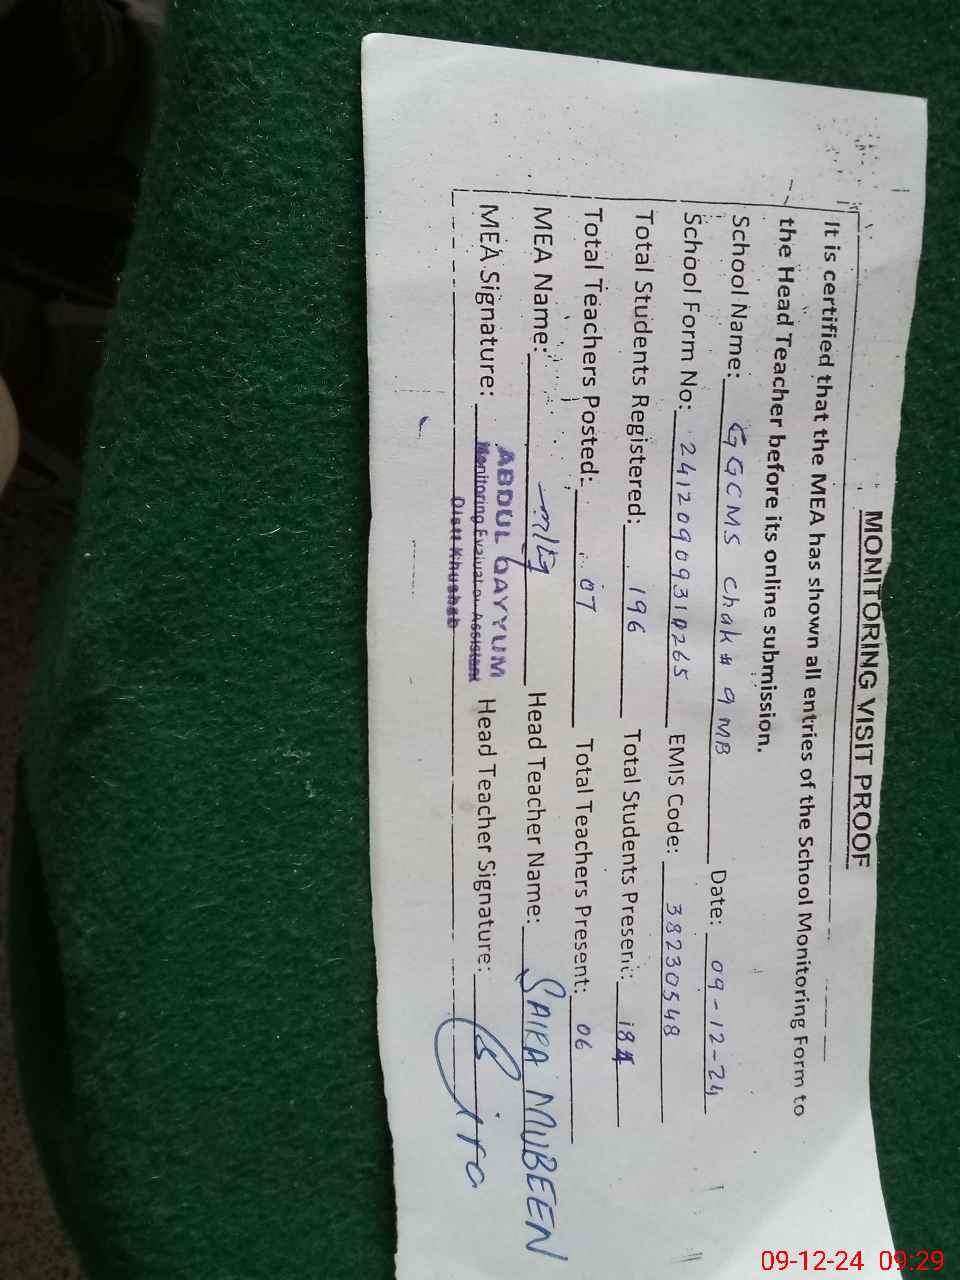 MONITORING VISIT PROOF
It is certified that the MEA has shown all entries of the School Monitoring Form to
the Head Teacher before its online submission.
School Name: GGCMS Chak # 9 MB Date: 09-12-24
School Form No: 24120909310265 EMIS Code: 38230548
Total Students Registered: 196 Total Students Present: 184
Total Teachers Posted: 07 Total Teachers Present: 06
MEA Name: Head Teacher Name: SAIRA MUBEEN
MEA Signature: Head Teacher Signature:
ABDUL QAYYUM
Monitoring Evaluator Assistant
Distt Khushab
09-12-24 09:29